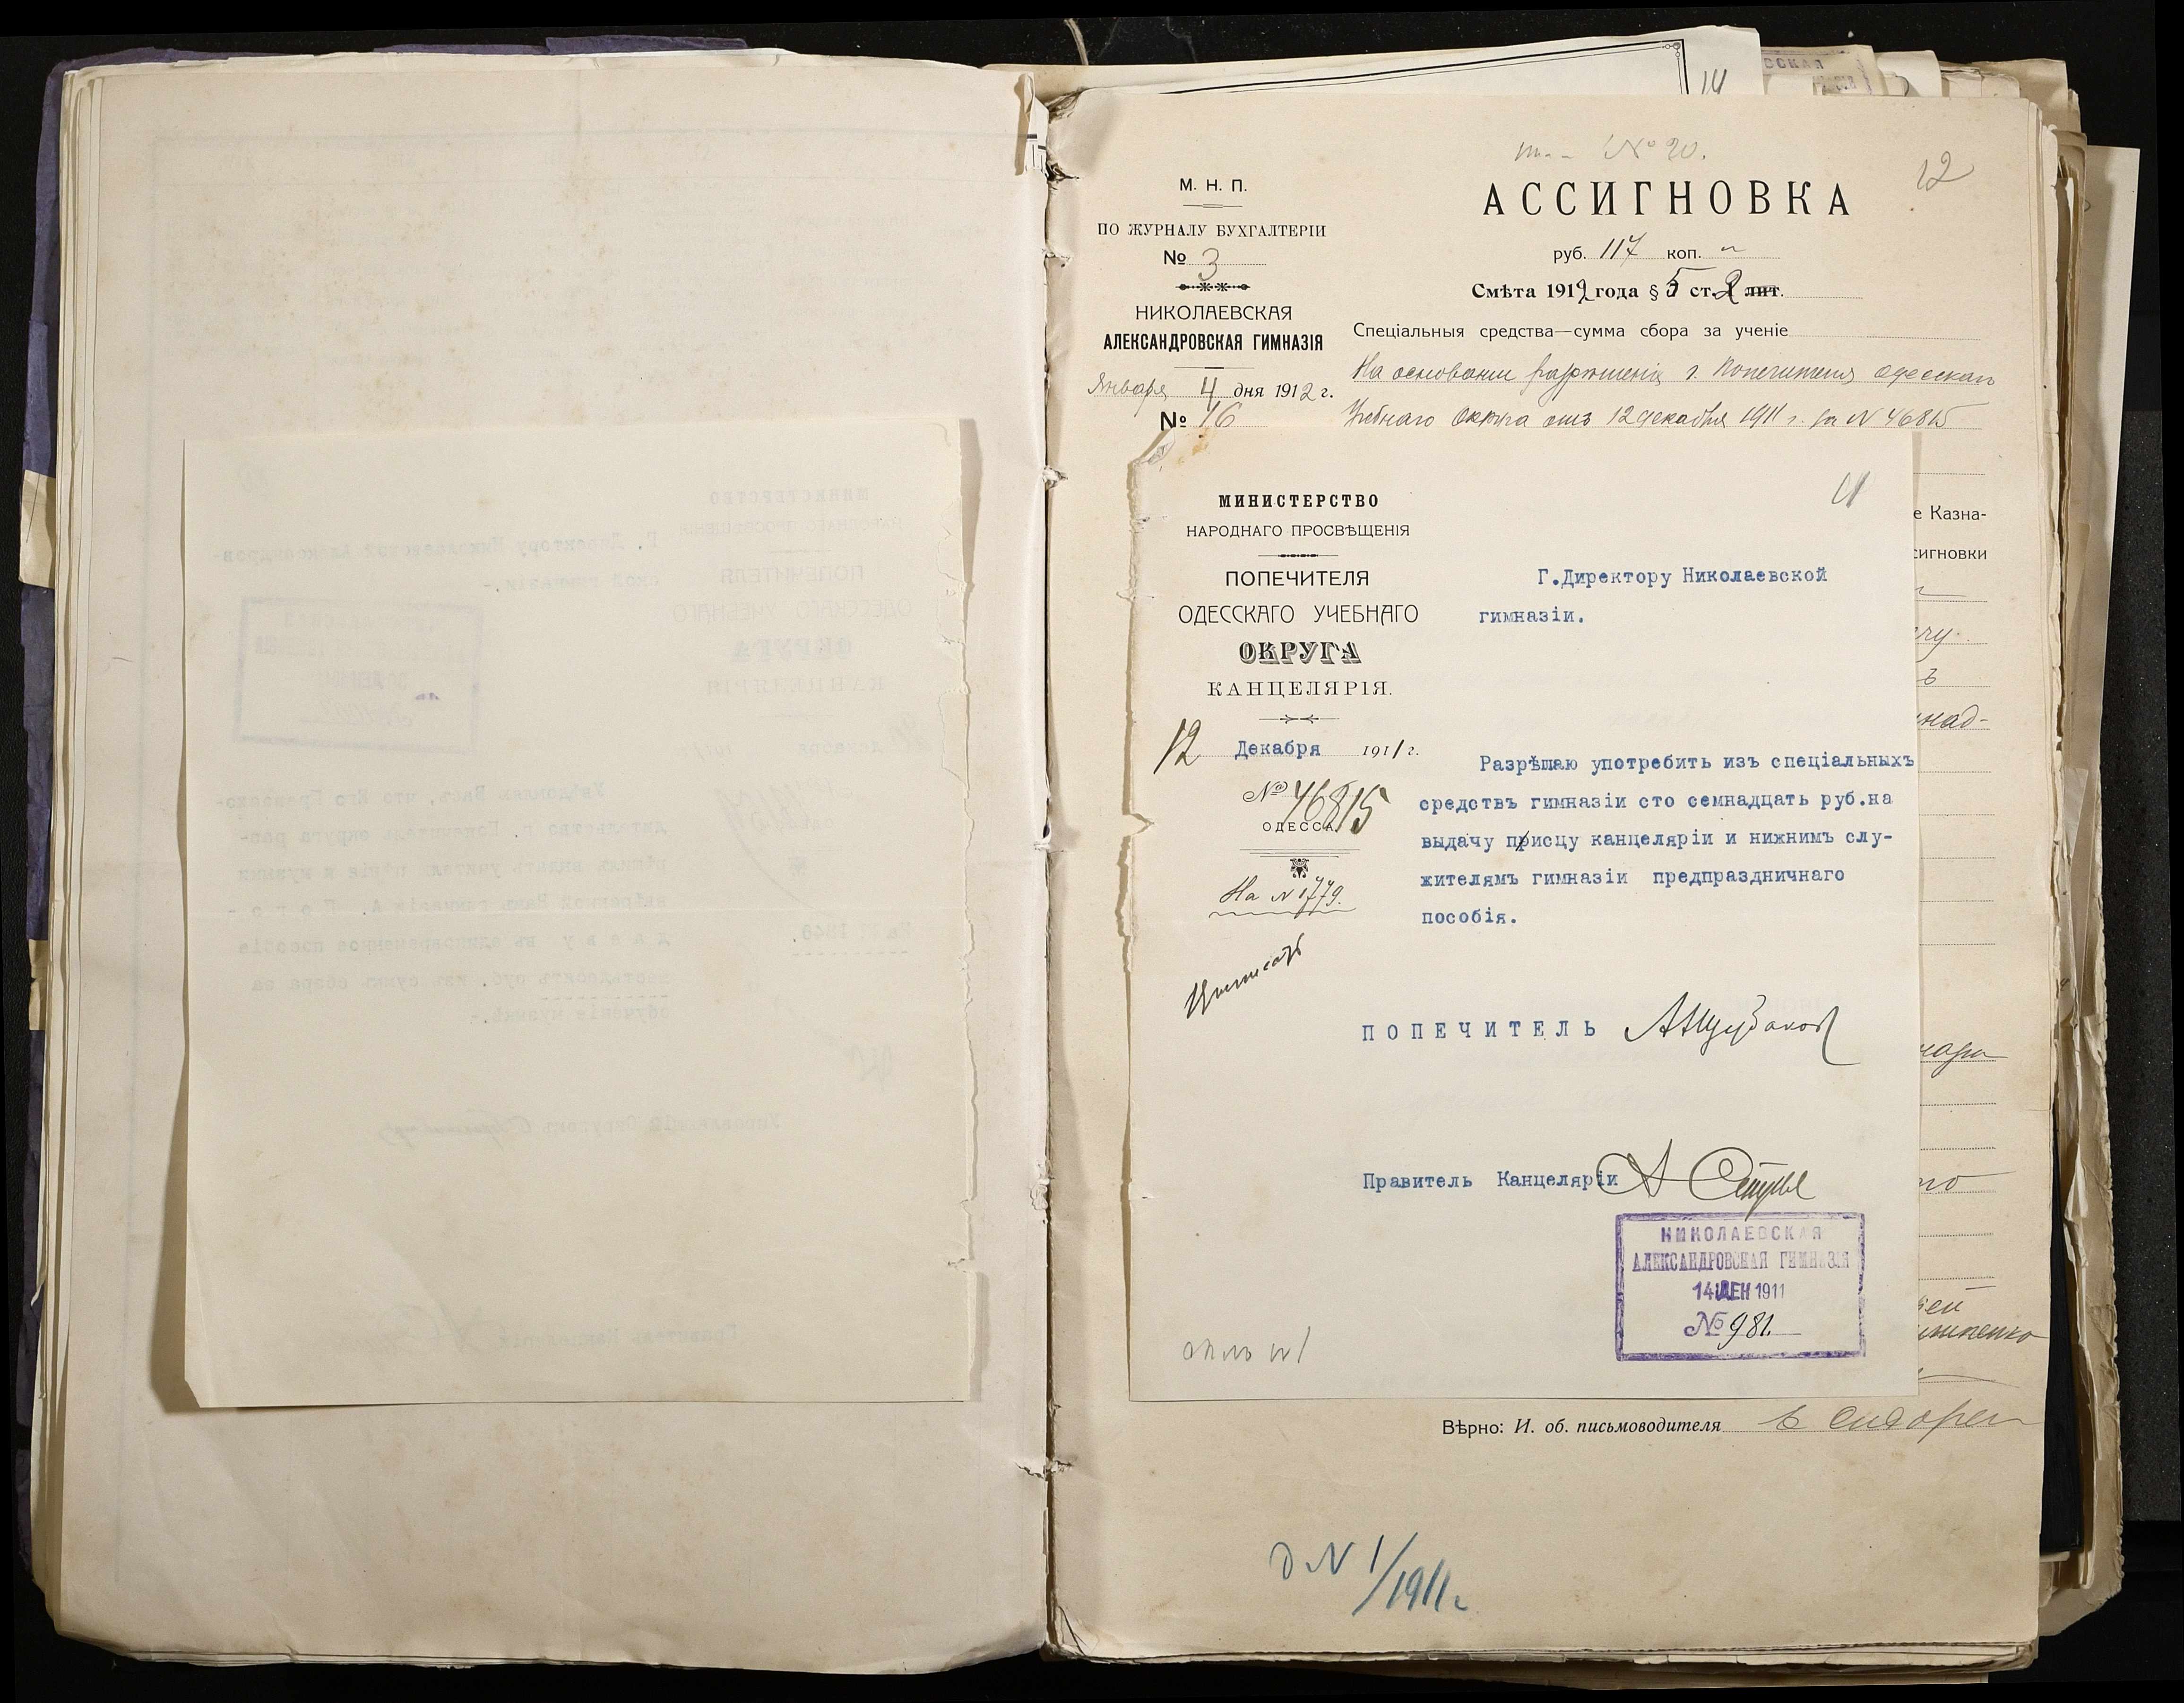 14
№ 20.
12
М. Н. П.
ПО ЖУРНАЛУ БУХГАЛТЕРІИ
№ 3
НИКОЛАЕВСКАЯ
АЛЕКСАНДРОВСКАЯ ГИМНАЗІЯ
Января 4 дня 1912 г.
№ 16
АССИГНОВКА
руб. 117 коп. „
Смѣта 1912 года § 5 ст. 2 лит.
Спеціальныя средства—сумма сбора за ученіе
На основаніи разрѣшенія г. Попечителя Одесскаго
Учебнаго Округа отъ 12 декабря 1911 г. за N 46815
е Казна-
сигновки
11
МИНИСТЕРСТВО
НАРОДНАГО ПРОСВѢЩЕНІЯ
ПОПЕЧИТЕЛЯ
ОДЕССКАГО УЧЕБНАГО
ОКРУГА
КАНЦЕЛЯРІЯ.
12 Декабря 1911 г.
№ 46815
ОДЕССА
На N 1779.
Г.Директору Николаевской
гимназіи.
Разрѣшаю употребить изъ спеціальныхъ
средствъ гимназіи сто семнадцать руб.на
выдачу писцу канцеляріи и нижнимъ слу-
жителямъ гимназіи предпраздничнаго
пособія.
ПОПЕЧИТЕЛЬ
Правитель Канцеляріи
НИКОЛАЕВСКАЯ
АЛЕКСАНДРОВСКАЯ ГИМНАЗІЯ
14 ДЕК 1911
№ 981.
Вѣрно: И. об. письмоводителя
д N 1/1911 г